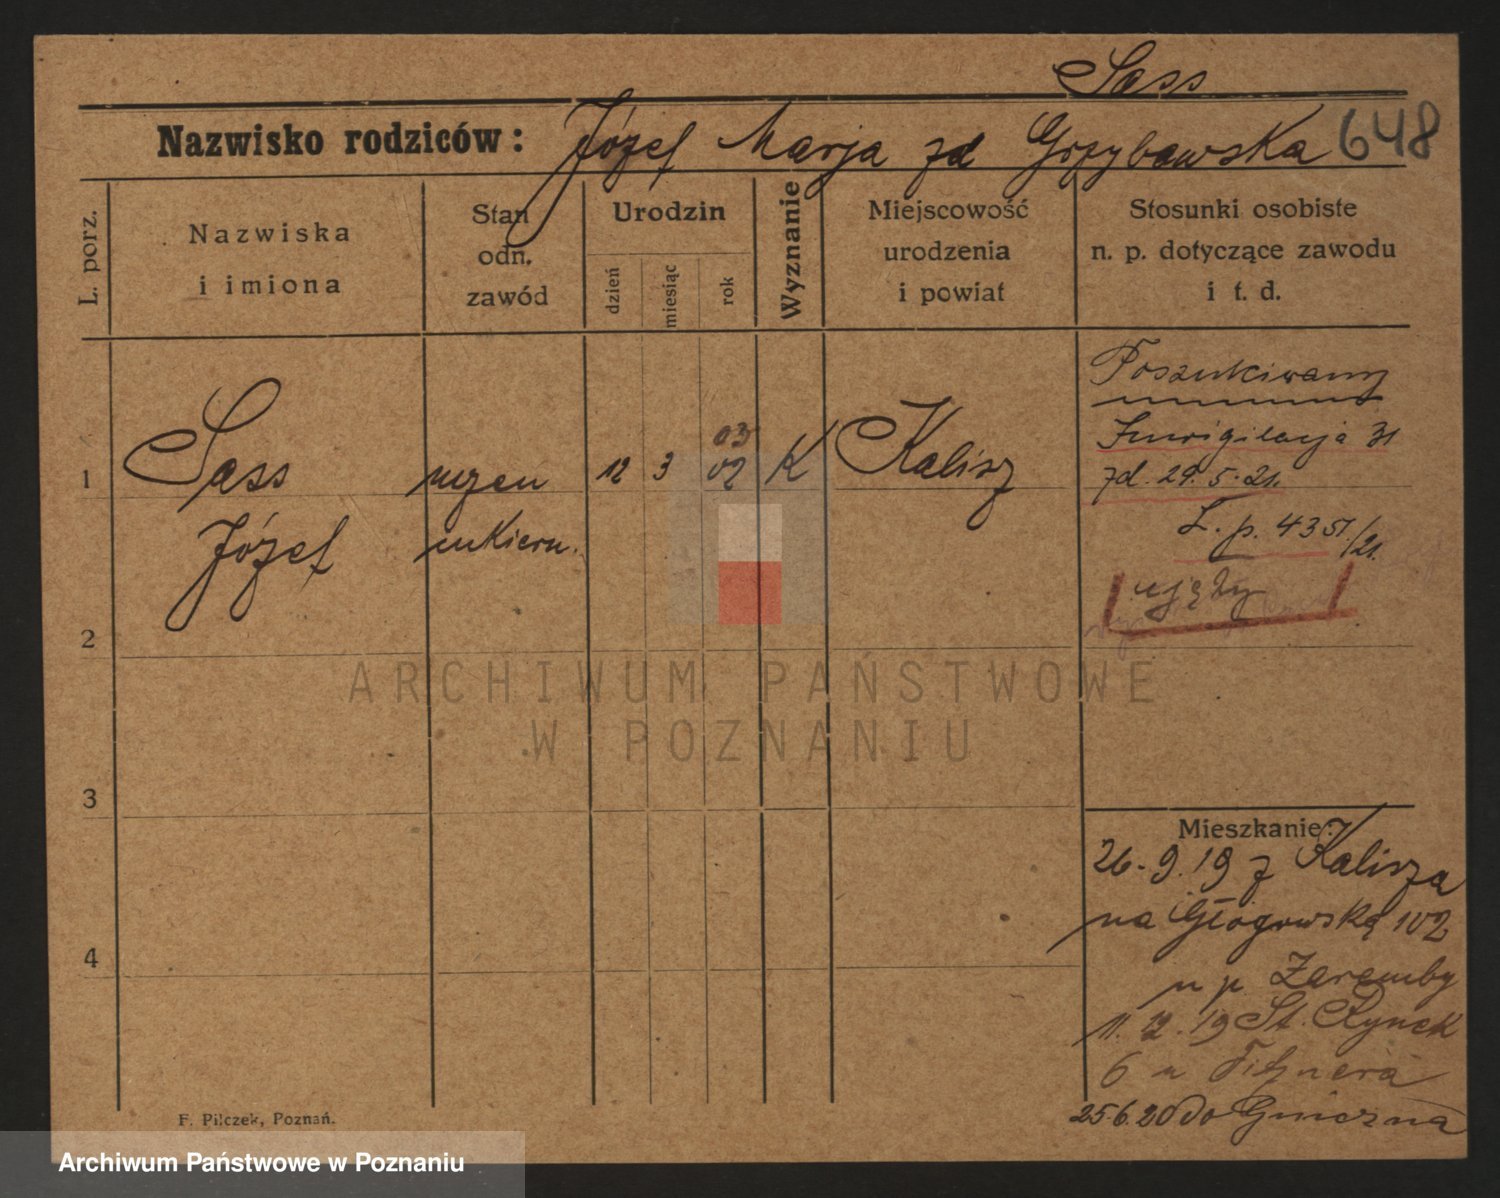 Sass
Nazwisko rodziców: Józef Marja zd Grzybowska 648
L. porz.
Nazwiska
i imiona
Stan
odn.
zawód
Urodzin
dzień
miesiąc
rok
Wyznanie
Miejscowość
urodzenia
i powiat
Stosunki osobiste
n. p. dotyczące zawodu
i t. d.
Poszukiwany
Inwigilacja 31
zd. 29. 5. 21.
L. p. 4351/21.
ujęty
03
1 Sass uczeń 12 3 02 K Kalisz
Józef cukiern.
2
3
4
Mieszkanie:
26.9.19 z Kalisza
na Głogowską 102
u p. Zaremby
11.12.19 St. Rynek
6 u
25.6.20 do Gniezna
F. Pilczek, Poznań.
ARCHIWUM PAŃSTWOWE
W POZNANIU
Archiwum Państwowe w Poznaniu